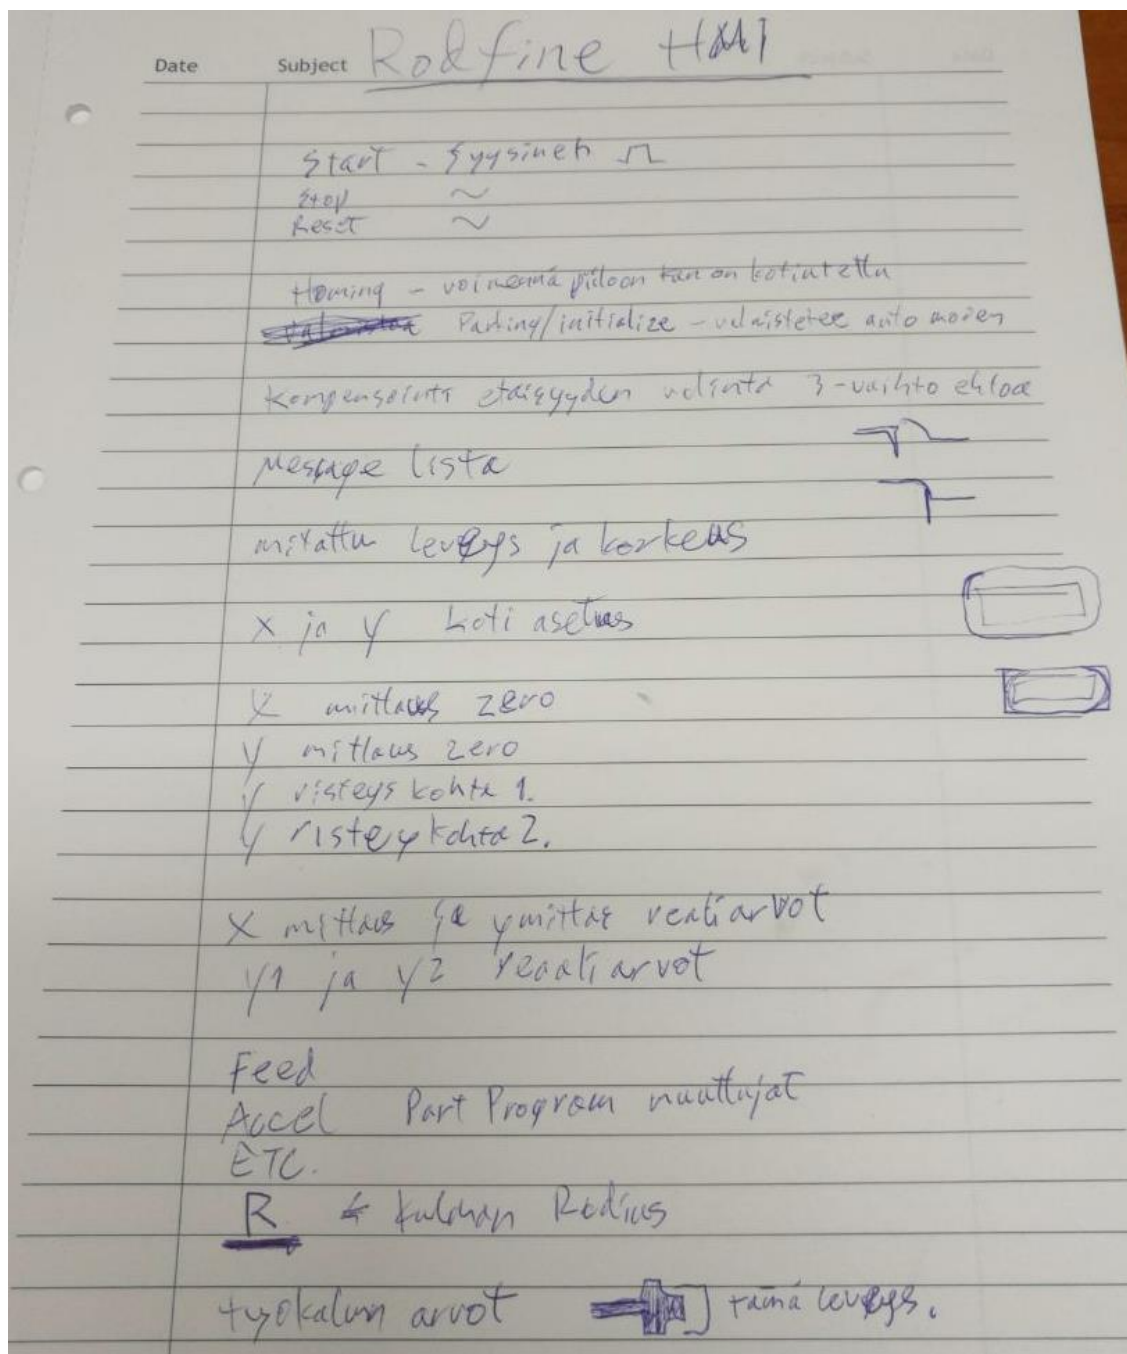 Date Subject Rodfine HMI
Start - Fyysinen
Stop ~
Reset ~
Homing - voi mennä piiloon kun on kotiutettu
Parking/initialize - valaistetee auto moden
Kompensointi etäisyyden valinta 3-vaihto ehtoa
Message lista
mitattu leveys ja korkeus
X ja Y koti asetus
X mittaus zero
Y mittaus zero
Y risteys kohta 1.
Y risteykohta 2.
X mittaus ja y mittas reaaliarvot
Y1 ja Y2 reaaliarvot
Feed
Accel Part Program muuttujat
ETC.
R ← kulman Radius
työkalun arvot tämä leveys.